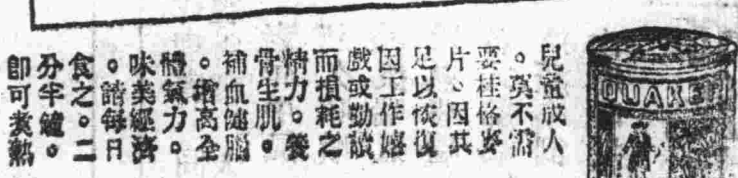 兒童成人
。莫不需
要桂格麥
片。因其
足以恢復
因工作嬉
戲或勤讀
而損耗之
精力。養
骨生肌。
補血健腦
。增高全
體氣力。
味美經濟
。請每日
食之。二
分半鐘。
即可煑熟
QUAKER